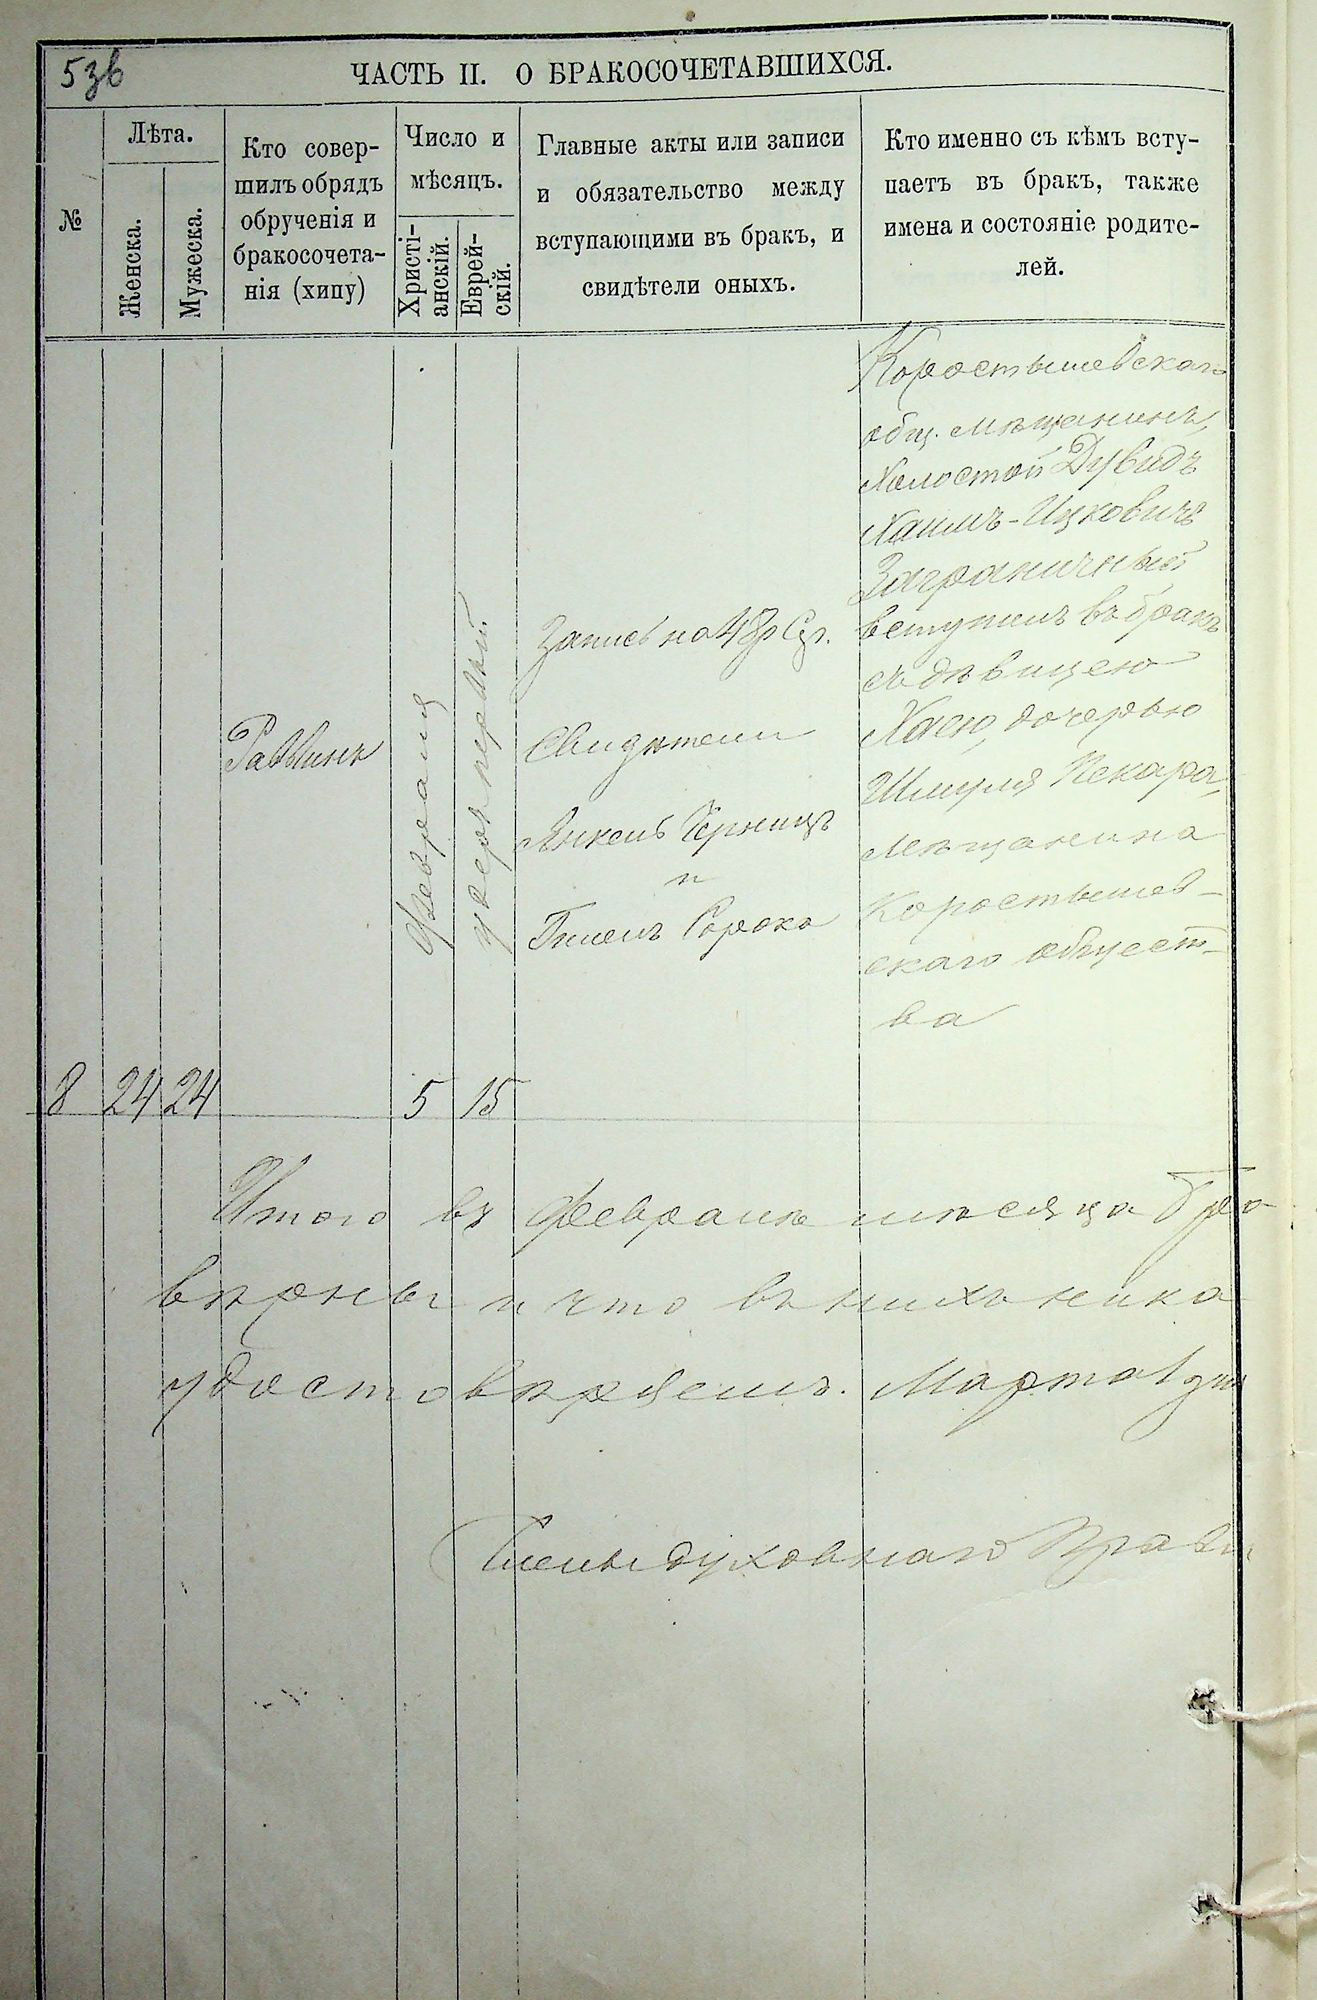 53в
ЧАСТЬ II. О БРАКОСОЧЕТАВШИХСЯ.
№
Лѣта.
Женска.
Мужеска.
Кто совер-
шилъ обрядъ
обрученія и
бракосочета-
нія (хипу)
Число и
мѣсяцъ.
Христі-
анскій.
Еврей-
скій.
Главные акты или записи
и обязательство между
вступающими въ бракъ, и
свидѣтели оныхъ.
Кто именно съ кѣмъ всту-
паетъ въ бракъ, также
имена и состояніе родите-
лей.
8
24
24
Раввинъ
Февраля
5
первый
15
Запись на 48 р
Свидѣтели
Янкель
и
Сорока
Коростышевскаго
общ. мѣщанинъ,
Холостой Дувидъ
Хаимъ-Ицковичъ
Заграничный
вступилъ въ бракъ
съ дѣвицею
Хаею, дочерью
Шмуля Пекаря,
мѣщанина
Коростышев-
скаго общест-
ва
Итого въ Февралѣ мѣсяца бра
вѣрны и что въ нихъ ника
удостовѣряемъ. Марта 1 дня
Члены духовнаго Правл